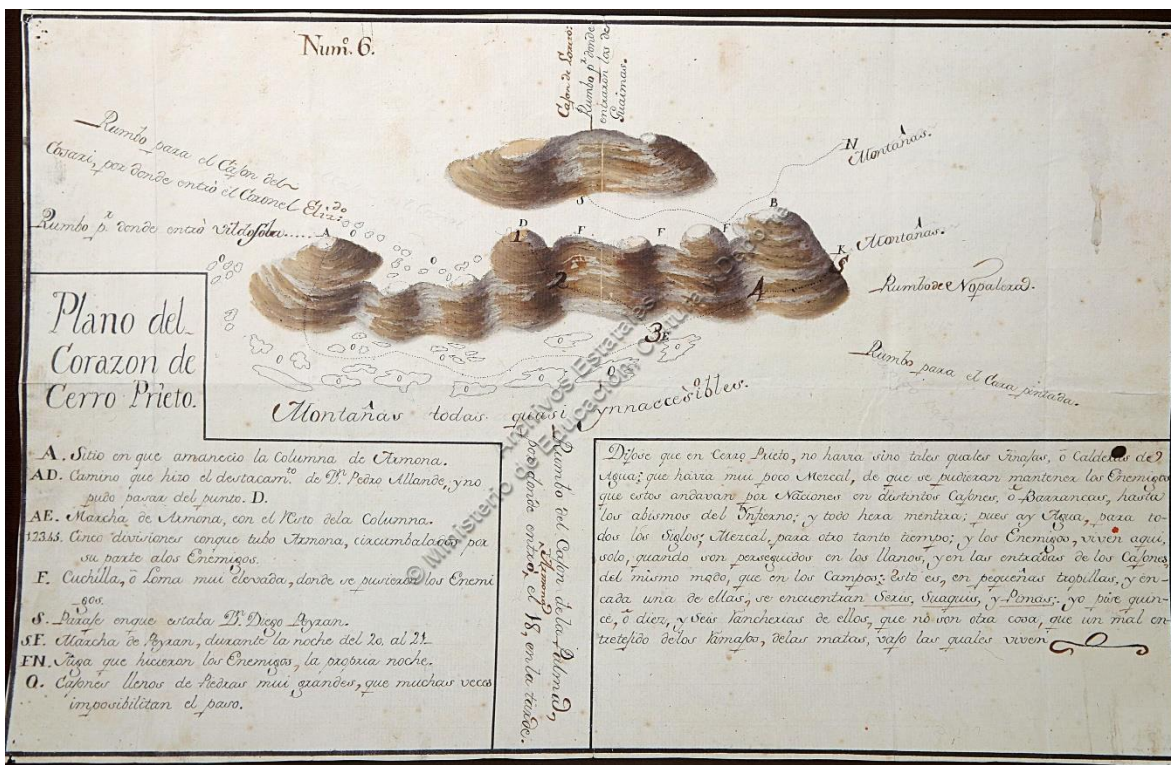 Num.º 6.
Cajon de
Rumbo p.r donde
entraron los de
Guaimas.
Rumbo para el Cajon del
Cosari, por donde entrò el Coronel Eliz.do
Rumbo p.r donde entrò Vildosola
N
Montañas.
S
A
D
F
F
F
B
K
Montañas.
1
2
3
E
4
5
O
Rumbo de Nopalera.
Rumbo para el Cara pintada.
Plano del
Corazon de
Cerro Prieto.
Montañas todas quasi Ynnaccesibles.
A. Sitio en que amanecio la Columna de Armona.
AD. Camino que hizo el destacam.to de D.n Pedro Allande, y no
pudo pasar del punto. D.
AE. Marcha de Armona, con el Resto dela Columna.
12345. Cinco divisiones conque tubo Armona, circumbalados por
su parte alos Enemigos.
F. Cuchilla, ò Loma mui elevada, donde se pusieron los Enemi
gos.
S. Paraje enque estaba D.n Diego Peyran.
SF. Marcha de Peyran, durante la noche del 20. al 21
FN. Fuga que hicieron los Enemigos, la propria noche.
O. Cajones llenos de Piedras mui grandes, que muchas veces
imposibilitan el paso.
Rumbo del Cajon de la Palma,
por donde entrò, Armona el 18, en la tarde.
Dijose que en Cerro Prieto, no havia sino tales quales Tinajas, ò Calderas de
Agua; que havia mui poco Mezcal, de que se pudieran mantener los Enemigos
que estos andavan por Naciones en distintos Cajones, ò Barrancas, hasta
los abismos del Ynfierno; y todo hera mentira; pues ay Agua, para to-
dos los Siglos; Mezcal, para otro tanto tiempo; y los Enemigos, viven aqui,
solo, quando son perseguidos en los llanos, y en las entradas de los Cajones,
del mismo modo, que en los Campos; esto es, en pequeñas tropillas, y en
cada una de ellas, se encuentran Seris, Suaquis, y Pimas; yo pise quin-
ce, ò diez, y Seis Rancherias de ellos, que no son otra cosa, que un mal en-
tretejido de los Ramajos, delas matas, vajo las quales viven
© Ministerio de Educación, Cultura y Deporte
Archivos Estatales